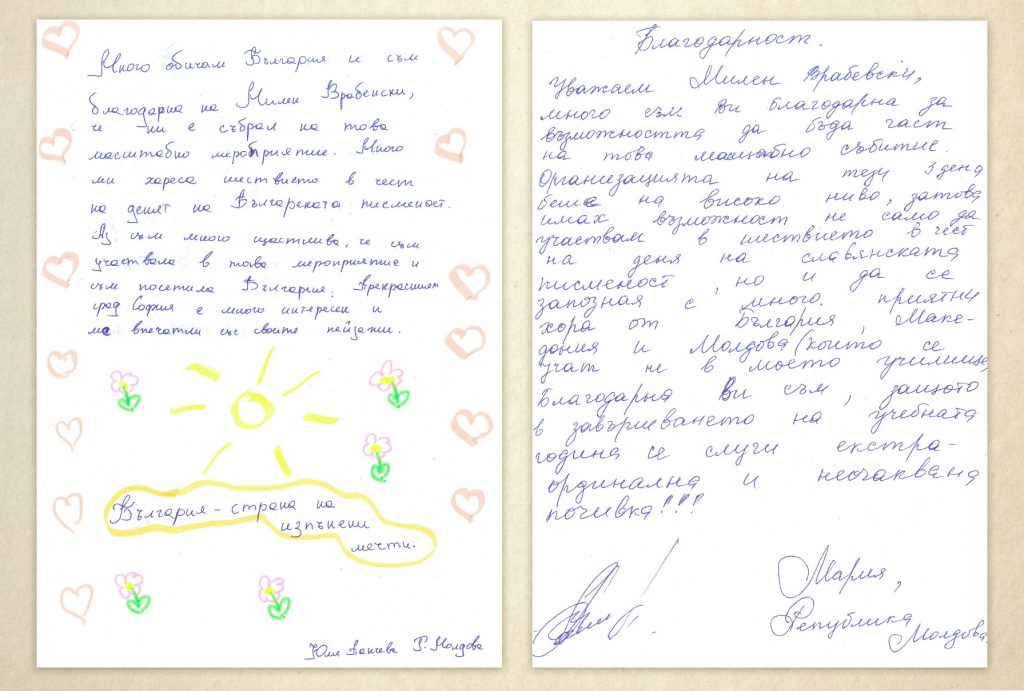 Много обичам България и съм
благодарна на Милен Врабенски,
че ни е събрал на това
масштабно мероприятие. Много
ми хареса шествието в чест
на денят на Българската писменост.
Аз съм много щастлива, че съм
участвала в това мероприятие и
съм посетила България. Прекрасният
град София е много интересен и
ме впечатли със своите пейзажи.
България - страна на
изпънени
мечти.
Юля Р. Молдова
Благодарност.
Уважаем Милен Врабевски,
много съм Ви благодарна за
възможността да бъда част
на това мащабно събитие.
Организацията на тези 3 дена
беше на високо ниво, затова
имах възможност не само да
участвам в шествието в чест
на деня на славянската
писменост, но и да се
запозная с много приятни
хора от България, Маке-
дония и Молдова (които се
учат не в моето училище,
Благодарна Ви съм, защото
в завършването на учебната
година се случи екстра-
ординална и неочаквана
почивка!!!
Мария,
Република
Молдова